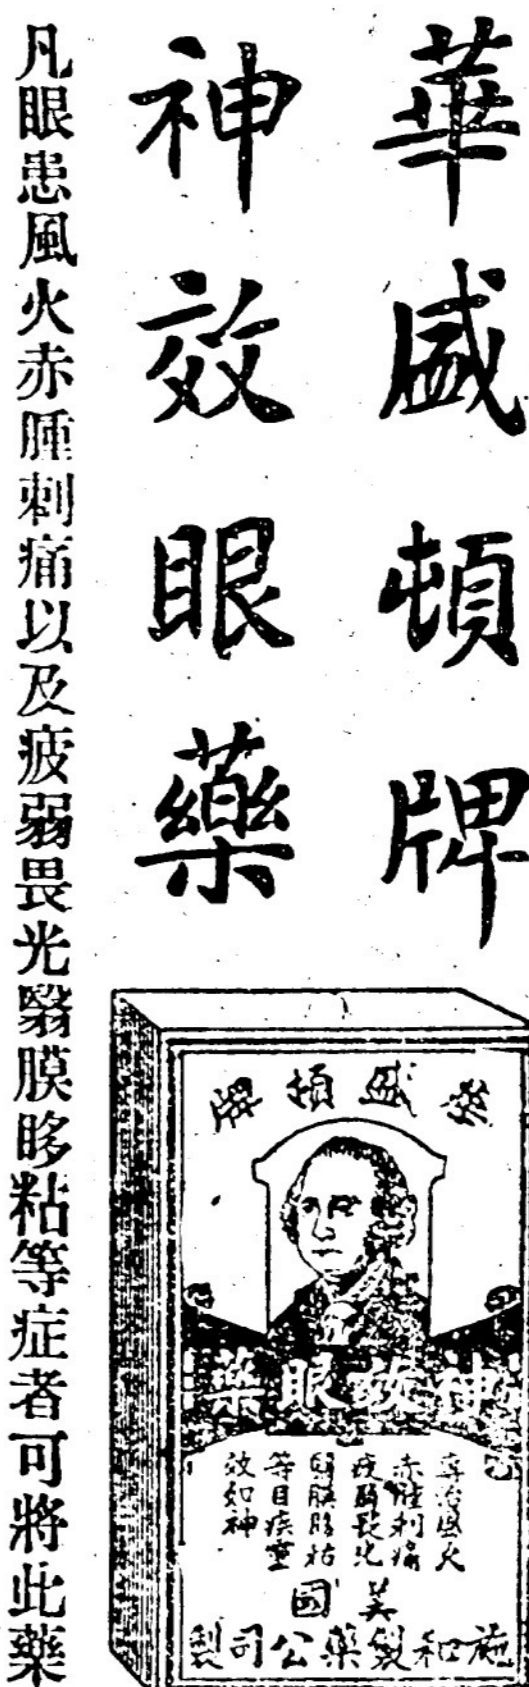 華盛頓牌
神效眼藥
華盛頓牌
神效眼藥
專治風火
赤腫刺痛
疲弱畏光
翳膜眵粘
等目疾靈
效如神
美國
施和製藥公司製
凡眼患風火赤腫刺痛以及疲弱畏光翳膜眵粘等症者可將此藥